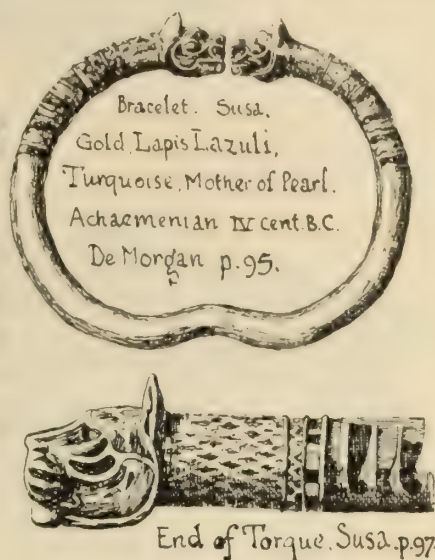 Bracelet. Susa.
Gold, Lapis Lazuli,
Turquoise, Mother of Pearl.
Achaemenian IV cent. B.C.
De Morgan p. 95.
End of Torque. Susa. p. 97